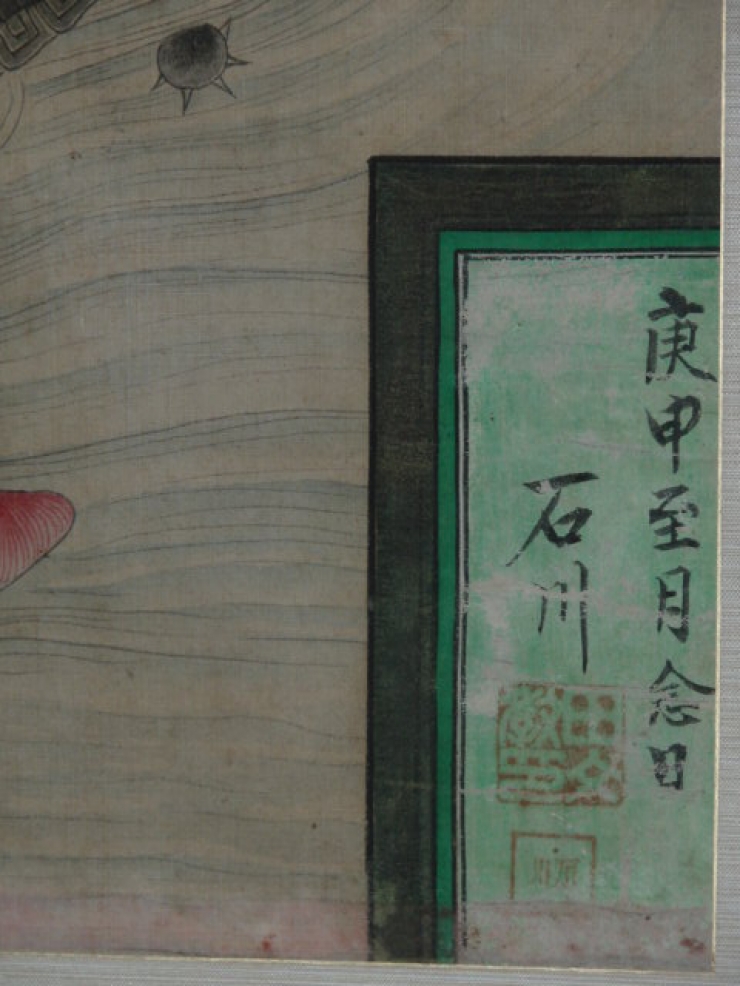 庚申至月念日
石川